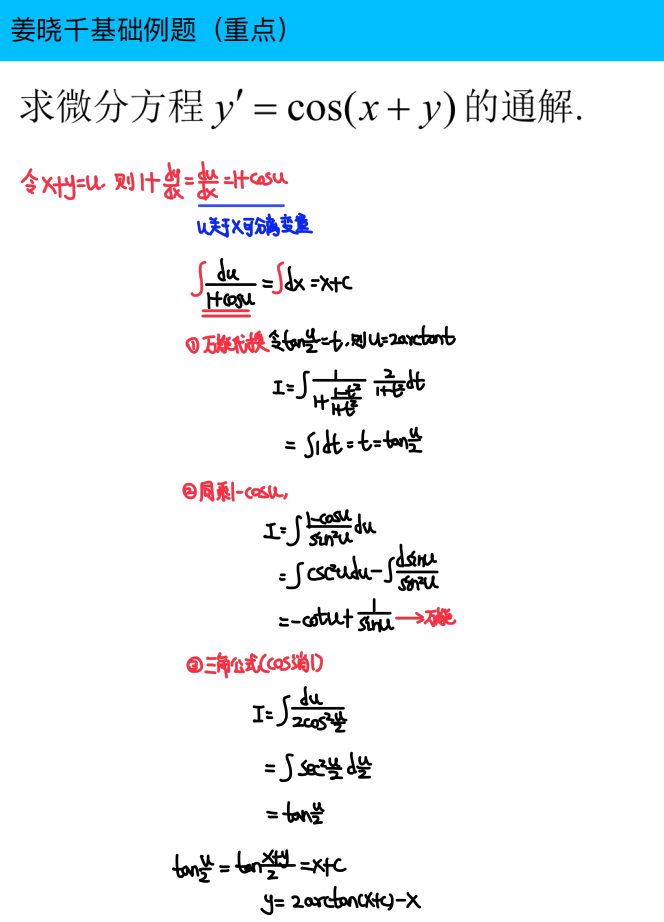 姜晓千基础例题（重点）
求微分方程 y′ = cos(x + y) 的通解.
令x+y=u. 则 1+dy/dx=du/dx=1+cosu
u关于x可分离变量
∫du/(1+cosu)=∫dx=x+c
①万能代换 令tan u/2=t.则u=2arctant
I=∫1/(1+(1-t²)/(1+t²)) 2/(1+t²)dt
=∫1dt=t=tan u/2
②同乘1-cosu,
I=∫(1-cosu)/sin²u du
=∫csc²udu-∫dsinu/sin²u
=-cotu+1/sinu→万能
③三角公式(cos消1)
I=∫du/(2cos² u/2)
=∫sec² u/2 d u/2
=tan u/2
tan u/2=tan (x+y)/2=x+c
y=2arctan(x+c)-x